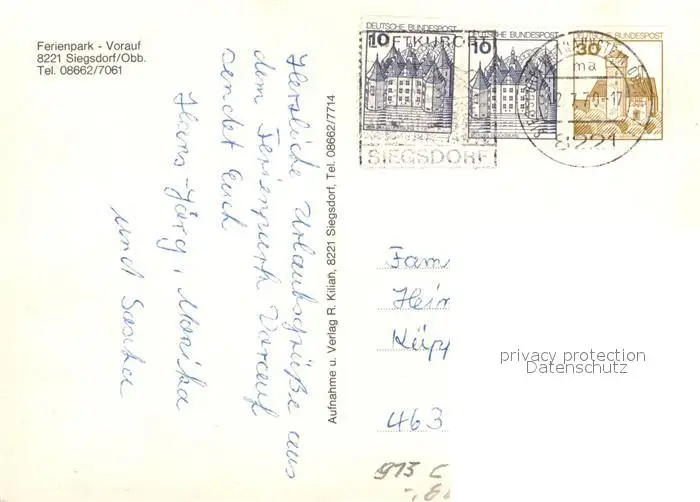 Ferienpark - Vorauf
8221 Siegsdorf/Obb.
Tel. 08662/7061
Herzliche Urlaubsgrüße aus
dem Ferienpark Vorauf
sendet Euch
Hans-Jörg, Monika
und Sascha
Aufnahme u. Verlag R. Kilian, 8221 Siegsdorf, Tel. 08662/7714
DEUTSCHE BUNDESPOST
10
DEUTSCHE BUNDESPOST
10
DEUTSCHE BUNDESPOST
30
LUFTKURORT
SIEGSDORF
ma
8221
Fam
Hein
Küpp
463
privacy protection
Datenschutz
973 C